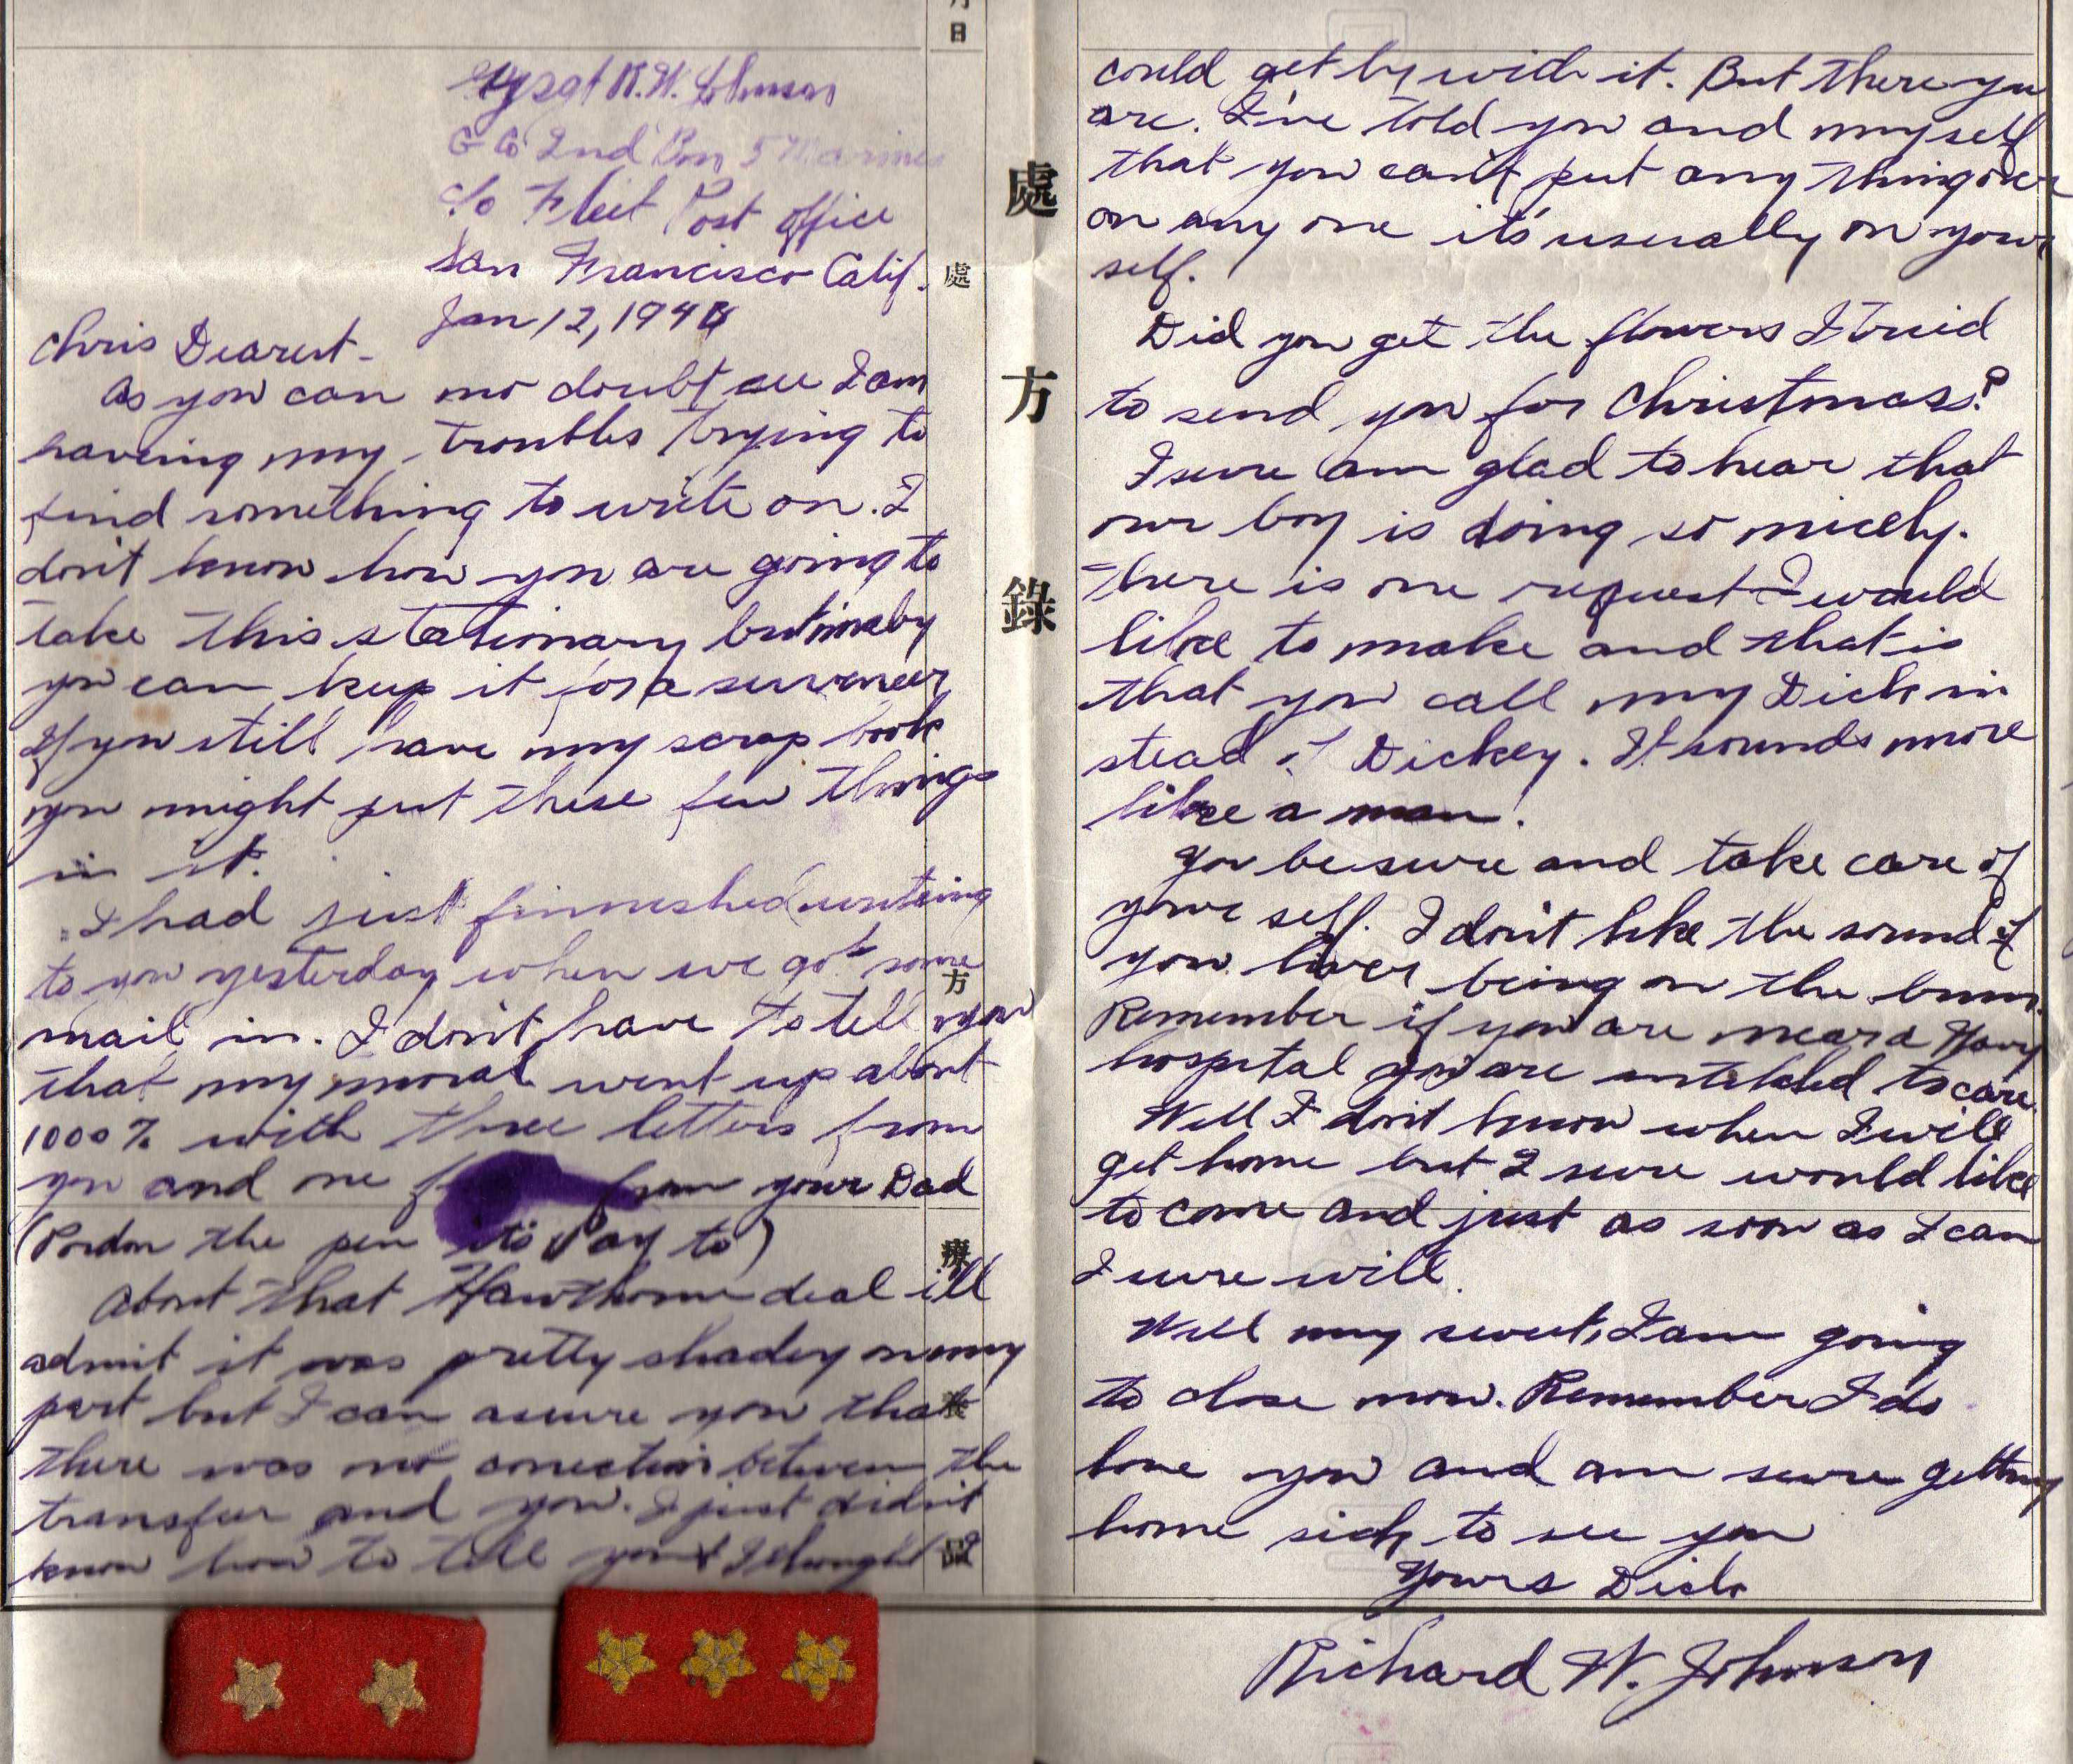 Gysgt R.W. Johnson
G Co 2nd Bon 5 Marines
c/o Fleet Post office
San Francisco Calif.
Jan 12, 194
Chris Dearest-
As you can no doubt see I am
haveing my troubles trying to
find something to write on. I
don't know how you are going to
take this stationary but maby
you can keep it for a surveneer
If you still have my scrap book
you might put these few things
in it.
I had just finnished writeing
to you yesterday when we got some
mail in. I don't have to tell you
that my moral went up about
1000% with three letters from
you and one from your Dad
(Pardon the pen its Pay to)
About that Hawthorne deal ill
admit it was pretty shadey on my
part but I can asure you that
there was no conection between the
transfer and you. I just didn't
know how to tell you & I thought I
could get by with it. But there you
are. I've told you and myself
that you can't put any thing over
on any one it's usually on your
self.
Did you get the flowers I tried
to send you for Christmas?
I sure am glad to hear that
our boy is doing so nicely.
There is one request I would
like to make and that is
that you call my Dick in
stead of Dickey. It sounds more
like a man.
You be sure and take care of
your self. I don't like the sound of
you liver being on the bum.
Remember if you are near a Navy
hospital you are intitled to care.
Well I don't know when I will
get home but I sure would like
to come and just as soon as I can
I sure will.
Well my sweet, I am going
to close now. Remember I do
love you and am sure getting
home sick to see you
Yours Dick
Richard W. Johnson
月
日
處
方
療
養
處
方
錄